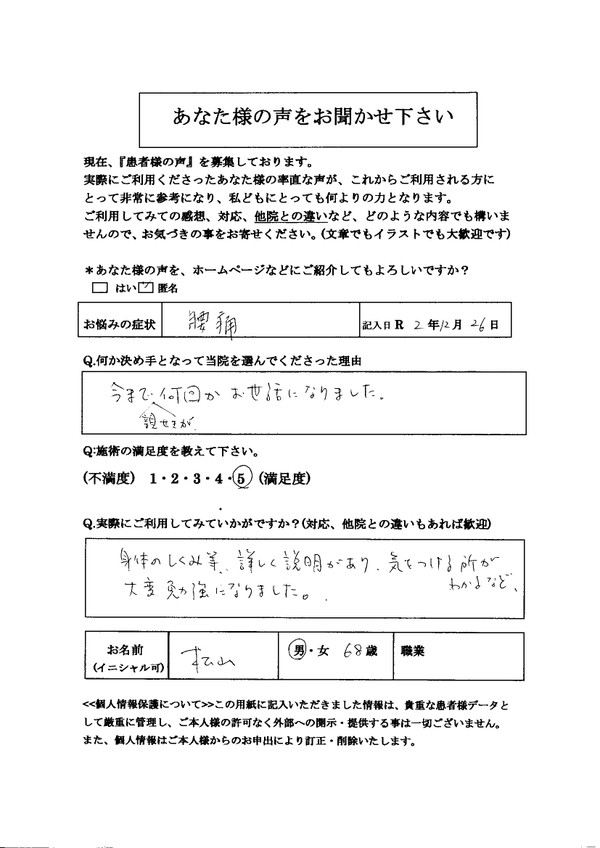 あなた様の声をお聞かせ下さい
現在、『患者様の声』を募集しております。
実際にご利用くださったあなた様の率直な声が、これからご利用される方に
とって非常に参考になり、私どもにとっても何よりの力となります。
ご利用してみての感想、対応、他院との違いなど、どのような内容でも構いま
せんので、お気づきの事をお寄せください。(文章でもイラストでも大歓迎です)
＊あなた様の声を、ホームページなどにご紹介してもよろしいですか？
□ はい ☑ 匿名
お悩みの症状 腰痛 記入日 R 2 年 12 月 26 日
Q.何か決め手となって当院を選んでくださった理由
今まで何回かお世話になりました。
親せきが
Q:施術の満足度を教えて下さい。
(不満度) 1・2・3・4・5 (満足度)
Q.実際にご利用してみていかがですか？(対応、他院との違いもあれば歓迎)
身体のしくみ等、詳しく説明があり、気をつける所が
わかるなど、
大変勉強になりました。
お名前 松山 男・女 68歳 職業
(イニシャル可)
<<個人情報保護について>>この用紙に記入いただきました情報は、貴重な患者様データと
して厳重に管理し、ご本人様の許可なく外部への開示・提供する事は一切ございません。
また、個人情報はご本人様からのお申出により訂正・削除いたします。